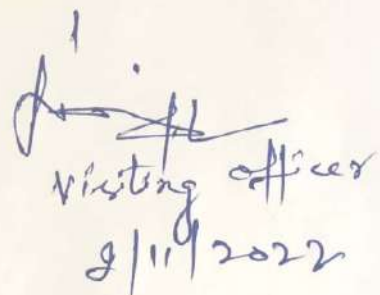 Visiting officer
2/11/2022